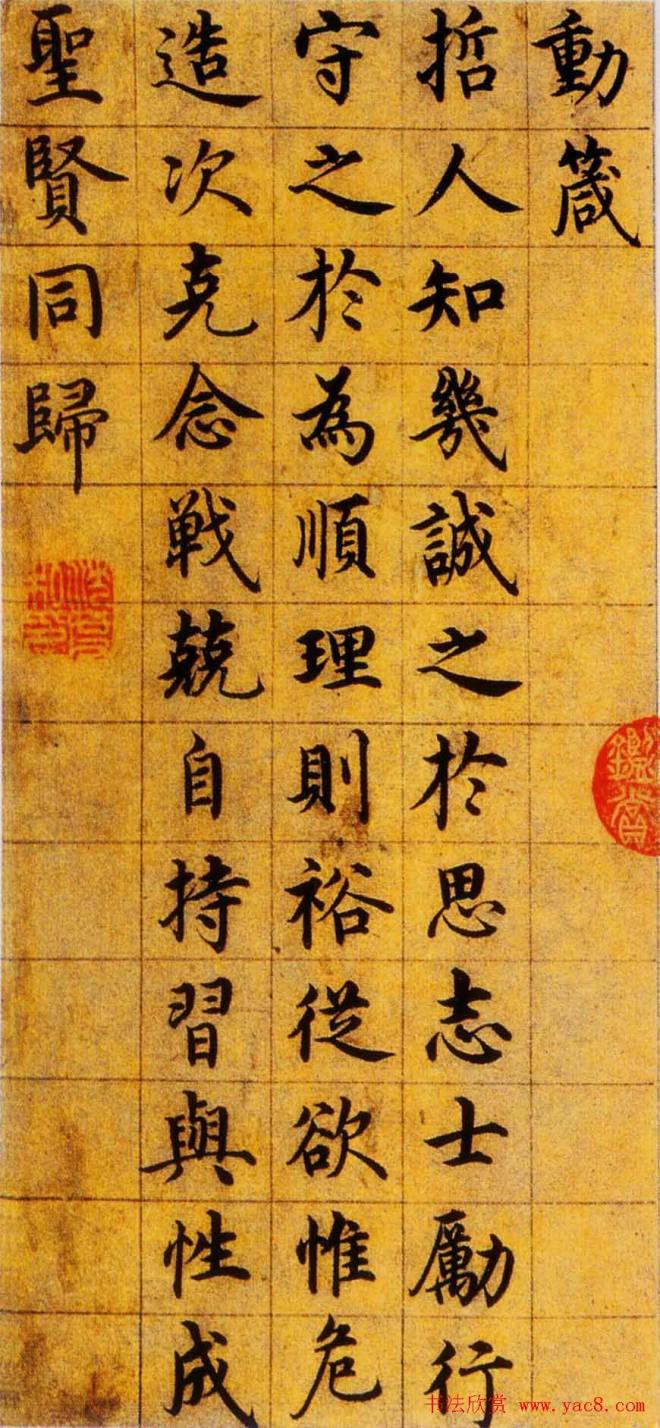 動箴
哲人知幾誠之於思志士勵行
守之於為順理則裕從欲惟危
造次克念戰兢自持習與性成
聖賢同歸
鑑賞
书法欣赏 www.yac8.com